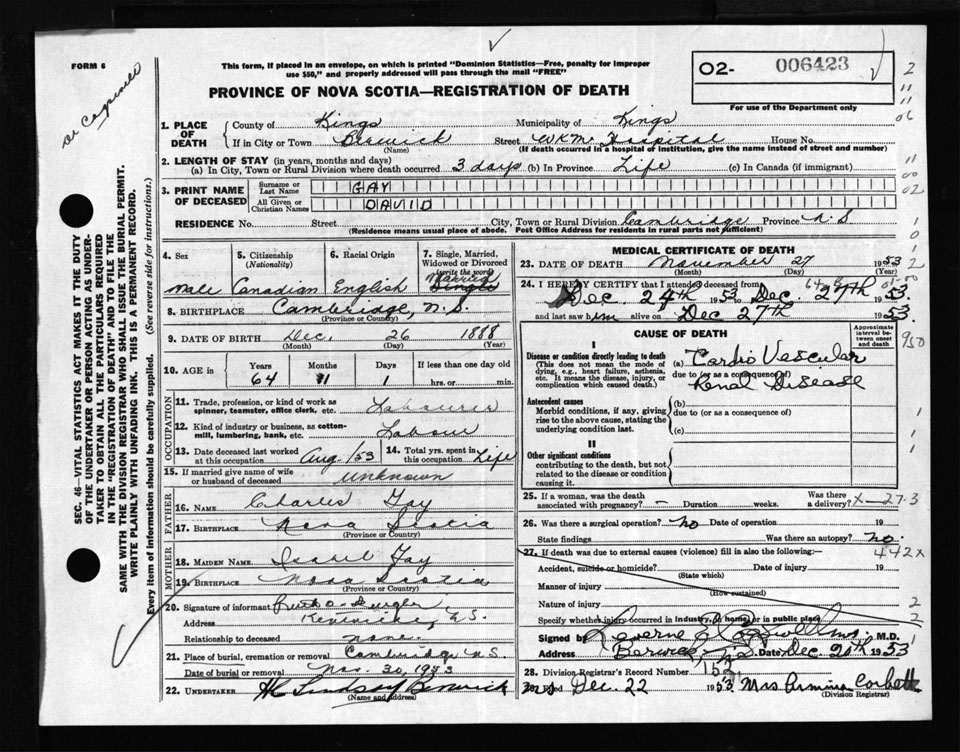 FORM 6
This form, if placed in an envelope, on which is printed "Dominion Statistics—Free, penalty for improper
use $50," and properly addressed will pass through the mail "FREE"
O2- 006423
For use of the Department only
PROVINCE OF NOVA SCOTIA—REGISTRATION OF DEATH
1. PLACE OF DEATH
County of Kings Municipality of Kings
If in City or Town Berwick Street WKM Hospital House No.
(Name) (If death occurred in a hospital of institution, give the name instead of street and number)
2. LENGTH OF STAY (in years, months and days)
(a) In City, Town or Rural Division where death occurred 3 days (b) In Province Life (c) In Canada (if immigrant)
3. PRINT NAME OF DECEASED
Surname or Last Name GAY
All Given or Christian Names DAVID
RESIDENCE No. Street City, Town or Rural Division Cambridge Province N.S
(Residence means usual place of abode. Post Office Address for residents in rural parts not sufficient)
4. Sex
Male
5. Citizenship
(Nationality)
Canadian
6. Racial Origin
English
7. Single, Married,
Widowed or Divorced
(write the word)
Married
Single
8. BIRTHPLACE Cambridge, N.S.
(Province or Country)
9. DATE OF BIRTH Dec. 26 1888
(Month) (Day) (Year)
10. AGE in
Years Months Days If less than one day old
64 11 1 hrs. or min.
OCCUPATION
11. Trade, profession, or kind of work as
spinner, teamster, office clerk, etc. Labourer
12. Kind of industry or business, as cotton-
mill, lumbering, bank, etc. Labour
13. Date deceased last worked
at this occupation Aug/53
14. Total yrs. spent in
this occupation Life
15. If married give name of wife
or husband of deceased unknown
FATHER
16. NAME Charles Gay
17. BIRTHPLACE Nova Scotia
(Province or Country)
MOTHER
18. MAIDEN NAME Isabel Gay
19. BIRTHPLACE Nova Scotia
(Province or Country)
20. Signature of informant
Address N.S.
Relationship to deceased none
21. Place of burial, cremation or removal Cambridge N.S.
Date of burial or removal Nov. 30, 1953
22. UNDERTAKER Lindsay Berwick
(Name and Address)
MEDICAL CERTIFICATE OF DEATH
23. DATE OF DEATH November 27 1953
(Month) (Day) (Year)
24. I HEREBY CERTIFY that I attended deceased from
Dec. 24th 1953 to Dec 27th 1953.
and last saw him alive on Dec 27th 1953.
CAUSE OF DEATH
Approximate interval between onset and death
I
Disease or condition directly leading to death
(This does not mean the mode of
dying, e.g., heart failure, asthenia,
etc. It means the disease, injury, or
complication which caused death.)
(a) Cardio Vascular
due to (or as a consequence of)
Renal Disease
Antecedent causes
Morbid conditions, if any, giving
rise to the above cause, stating the
underlying condition last.
(b)
due to (or as a consequence of)
(c)
II
Other significant conditions
contributing to the death, but not
related to the disease or condition
causing it.
25. If a woman, was the death
associated with pregnancy? - Duration weeks. Was there
a delivery? X-27-3
26. Was there a surgical operation? No Date of operation 19
State findings Was there an autopsy? no.
442x
27. If death was due to external causes (violence) fill in also the following:—
Accident, suicide or homicide? Date of injury 19
(State which)
Manner of injury
(How sustained)
Nature of injury
Specify whether injury occurred in industry, in home, or in public place
Signed by M.D.
Address Berwick, N.S. Date Dec 20th 1953
28. Division Registrar's Record Number 152
Dec. 22 1953 Mrs Armina Corbett
(Division Registrar)
SEC. 46—VITAL STATISTICS ACT MAKES IT THE DUTY
OF THE UNDERTAKER OR PERSON ACTING AS UNDER-
TAKER TO OBTAIN ALL THE PARTICULARS REQUIRED
IN THE "REGISTRATION OF DEATH" AND TO FILE THE
SAME WITH THE DIVISION REGISTRAR WHO SHALL ISSUE THE BURIAL PERMIT.
WRITE PLAINLY WITH UNFADING INK. THIS IS A PERMANENT RECORD.
Every item of information should be carefully supplied. (See reverse side for instructions.)